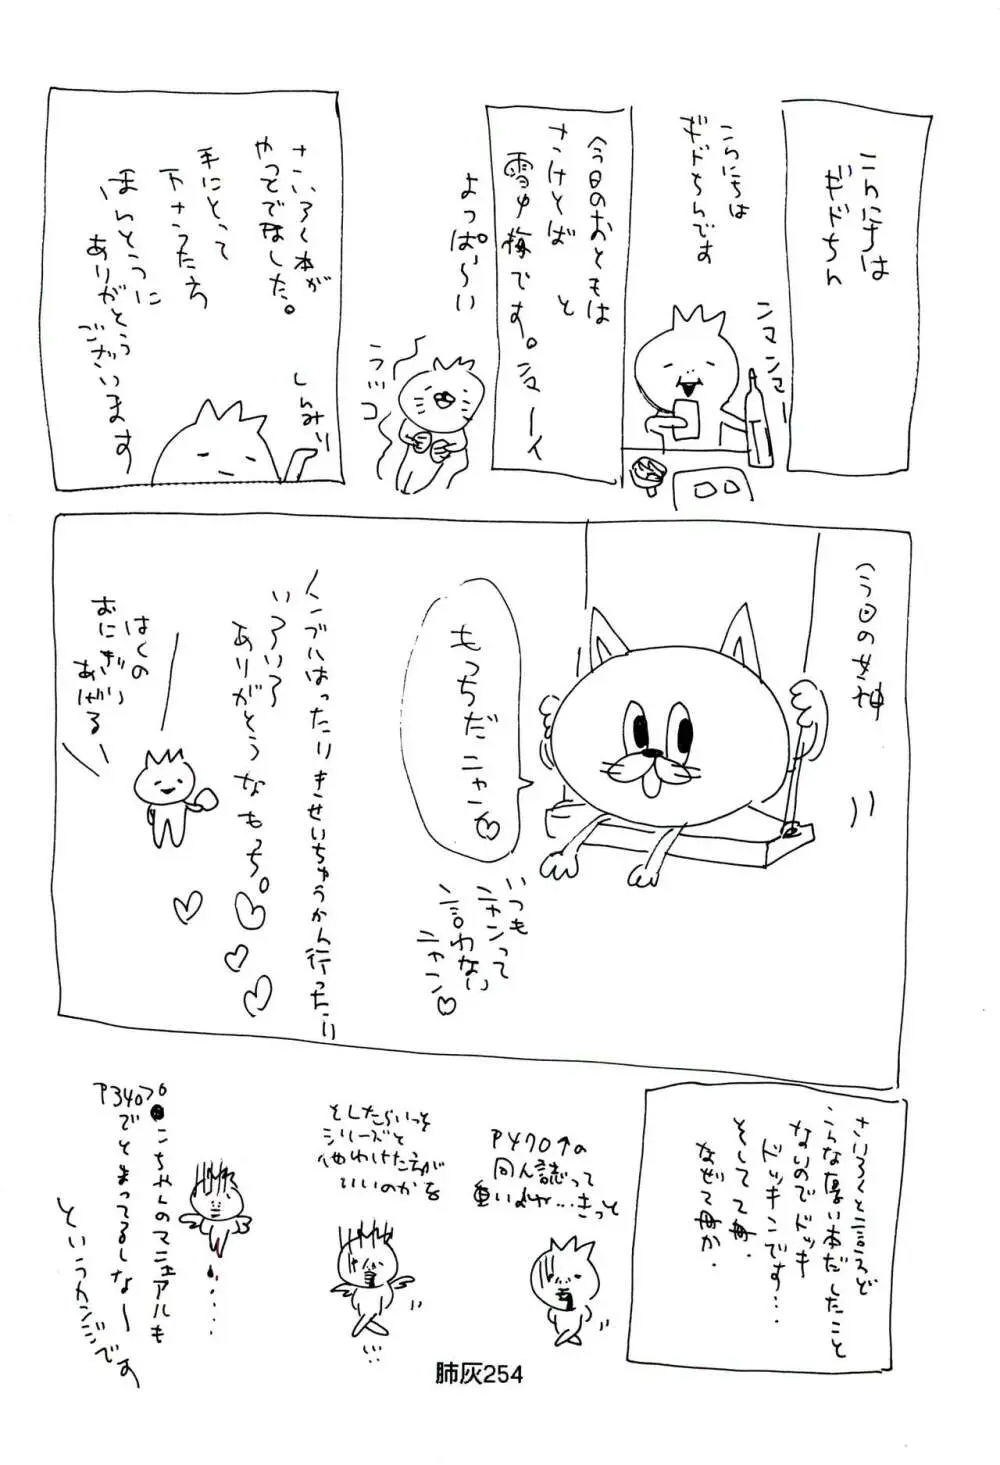 こんにちは
ギドちん
こんにちは
ギドちんです
ンマンマー
今日のおともは
さけとば と
雪中梅です。ンマーイ
よっぱらい
うッコ
さいろく本が
やっとでました。
手にとって
下さった方
ほんとうに
ありがとう
ございます
しんみり
今日の女神
もっちだニャン♡
いつも
ニャンって
言わない
ニャン♡
いろいろ
ありがとうなもっち。
はくの
おにぎり
あげる
さいろくと言えど
こんな厚い本だしたこと
ないのでドッキ
ドッキンです…
そして再・
なぜて再か・
P470↑の
同人誌って
重いよね…きっと
としたらいっそ
シリーズと
わけた方が
いいのかな
P340プ
こちゃんのマニュアルも
でとまってるしな〜
というカンジです
肺灰254